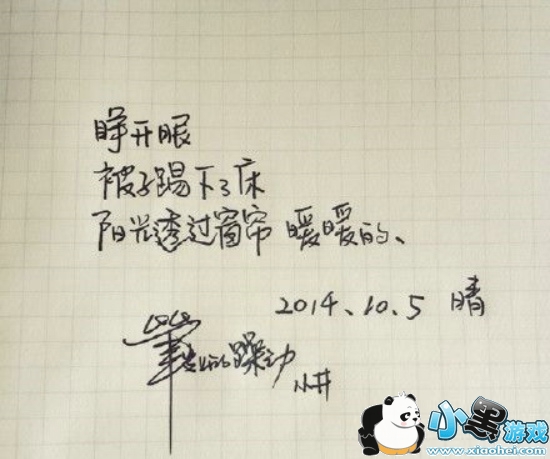 睁开眼
被子踢下了床
阳光透过窗帘 暖暖的、
2014、10、5 晴
的躁动
小井
小黑游戏
www.xiaohei.com